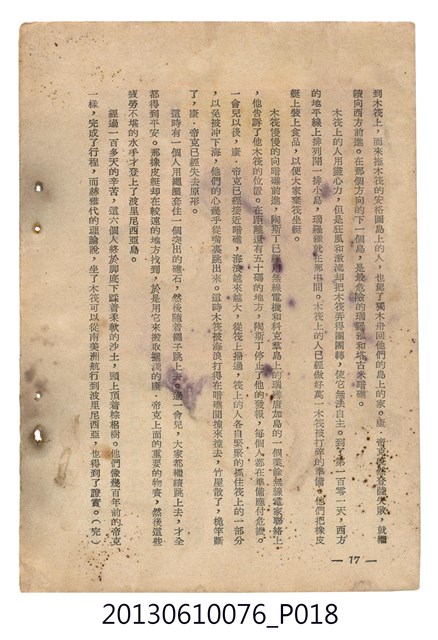 到木筏上，而來拖木筏的安格圖島上的人，也駕了獨木舟回他們的島上的家。康·帝克號登陸失敗，就繼
續向西方前進。在那個方向的下一個島，是最危險的瑞羅雅和塔古米暗礁。
木筏上的人用盡心力，但是狂風和激流却把木筏弄得團團轉，使它無法自主。到了第一百零一天，西方
的地平線上排列開一排小島，瑞羅雅就在那中間。木筏上的人已經做好萬一木筏被打碎的準備。他們把橡皮
艇上裝上食品，以便大家棄筏坐艇。
木筏慢慢的向暗礁前進，陶斯丁已經用無線電機和科克羣島上的瑞羅唐加島的一個業餘無線電家聯絡上
，他告訴了他木筏的位置。在距離還有五十碼的地方，陶斯丁停止了他的發報，每個人都在準備應付危險。
一會兒以後，康·帝克已經接近暗礁，海浪越來越大，從筏上掃過，筏上的人各自緊緊的抓住筏上的一部分
，以免被沖下海，他們的心幾乎從嘴裏跳出來。這時木筏被海浪打得在暗礁間撞來撞去，竹屋散了，桅竿斷
了，康·帝克已經失去原形。
這時有一個人用繩圈套住一個突出的礁石，然後隨着繩子跳上去。過一會兒，大家都繼續跳上去，才全
都得到平安。那橡皮艇却在較遠的地方找到，於是用它來撤取擱淺的康·帝克上面的重要的物資，然後這些
疲勞不堪的水手才登上了波里尼西亞島。
經過一百多天的辛苦，這六個人終於脚底下踩着柔軟的沙土，頭上頂着棕櫚樹。他們像幾百年前的帝克
一樣，完成了行程，而赫雅代的理論說，坐了木筏可以從南美洲航行到波里尼西亞，也得到了證實。（完）
— 17 —
20130610076_P018